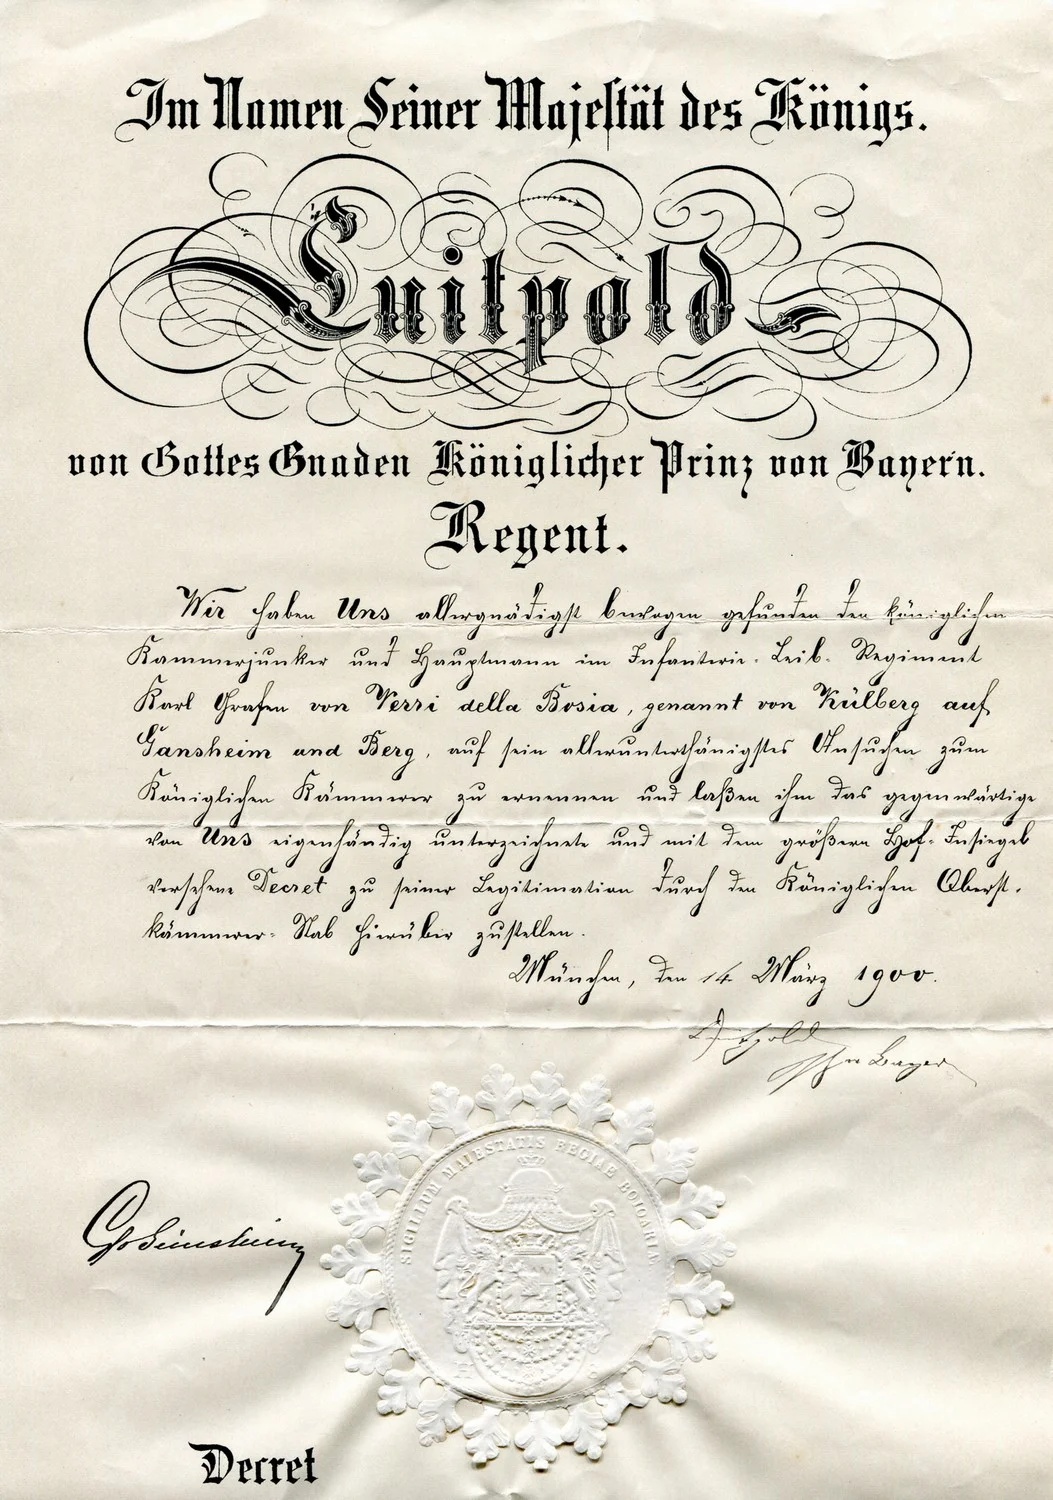 Im Namen Seiner Majestät des Königs.
Luitpold
von Gottes Gnaden Königlicher Prinz von Bayern.
Regent.
Wir haben Uns allergnädigst bewogen gefunden den königlichen
Kammerjunker und Hauptmann im Infanterie-Leib-Regiment
Karl Grafen von Yerri della Bosia, genannt von Külberg auf
Gansheim und Berg, auf sein allerunterthänigstes Ansuchen zum
Königlichen Kämmerer zu ernennen und laßen ihm das gegenwärtige
von Uns eigenhändig unterzeichnete und mit dem größern Hof-Insiegel
versehene Decret zu seiner Legitimation durch den Königlichen Oberst-
kämmerer-Stab hierüber zustellen.
München, den 14. März 1900.
Luitpold
Prz. v. Bayern
SIGILLUM MAIESTATIS REGIAE BOIOARIAE
Decret